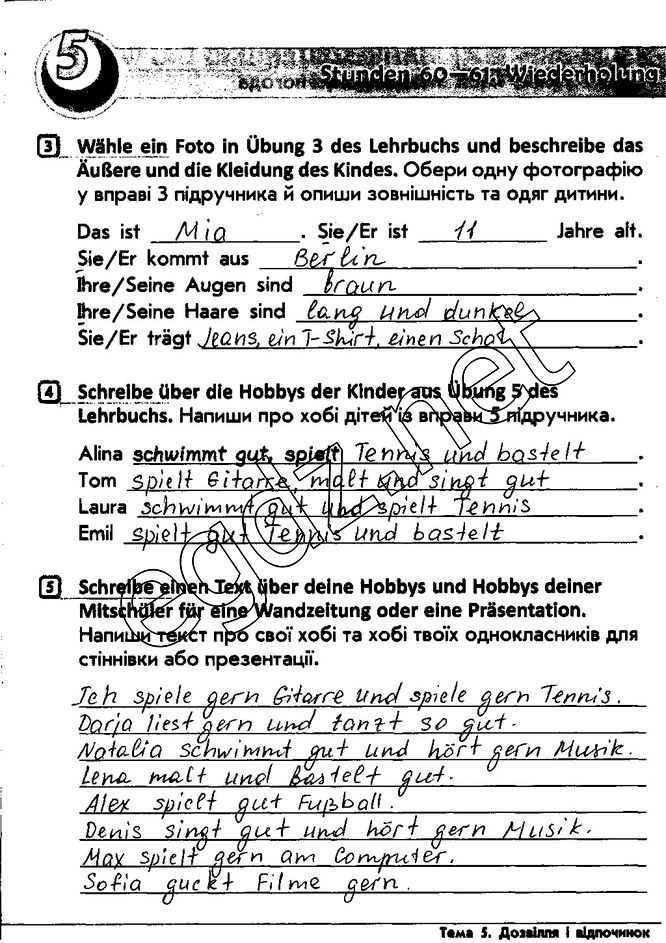 5
Stunden 60–61. Wiederholung
3 Wähle ein Foto in Übung 3 des Lehrbuchs und beschreibe das
Äußere und die Kleidung des Kindes. Обери одну фотографію
у вправі 3 підручника й опиши зовнішність та одяг дитини.
Das ist Mia. Sie/Er ist 11 Jahre alt.
Sie/Er kommt aus Berlin.
Ihre/Seine Augen sind braun.
Ihre/Seine Haare sind lang und dunkel.
Sie/Er trägt Jeans, ein T-Shirt, einen Schal.
4 Schreibe über die Hobbys der Kinder aus Übung 5 des
Lehrbuchs. Напиши про хобі дітей із вправи 5 підручника.
Alina schwimmt gut, spielt Tennis und bastelt.
Tom spielt Gitarre, malt und singt gut.
Laura schwimmt gut und spielt Tennis.
Emil spielt gut Tennis und bastelt.
5 Schreibe einen Text über deine Hobbys und Hobbys deiner
Mitschüler für eine Wandzeitung oder eine Präsentation.
Напиши текст про свої хобі та хобі твоїх однокласників для
стіннівки або презентації.
Ich spiele gern Gitarre und spiele gern Tennis.
Darja liest gern und tanzt so gut.
Natalia schwimmt gut und hört gern Musik.
Lena malt und bastelt gut.
Alex spielt gut Fußball.
Denis singt gut und hört gern Musik.
Max spielt gern am Computer.
Sofia guckt Filme gern.
Тема 5. Дозвілля і відпочинок
egdz.net